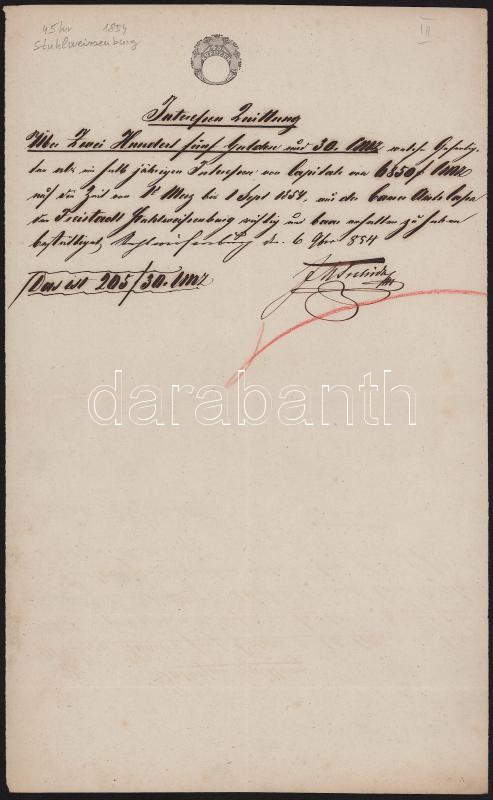 45 kr 1854
Stuhlweissenburg
III
Interessen Quittung
Über Zwei Hundert fünf Gulden und 30. CMz, welche Gefertig-
ter als die halb jährigen Interessen von Capitale von 6850 f CMz
auf die Zeit von 1t Merz bis 1 Sept 1854, aus der Cassa
der Freistadt Stuhlweissenburg richtig und baar erhalten zu haben
bestättiget. Stuhlweissenburg den 6 9ber 854
Das ist 205/30. CMz
darabanth